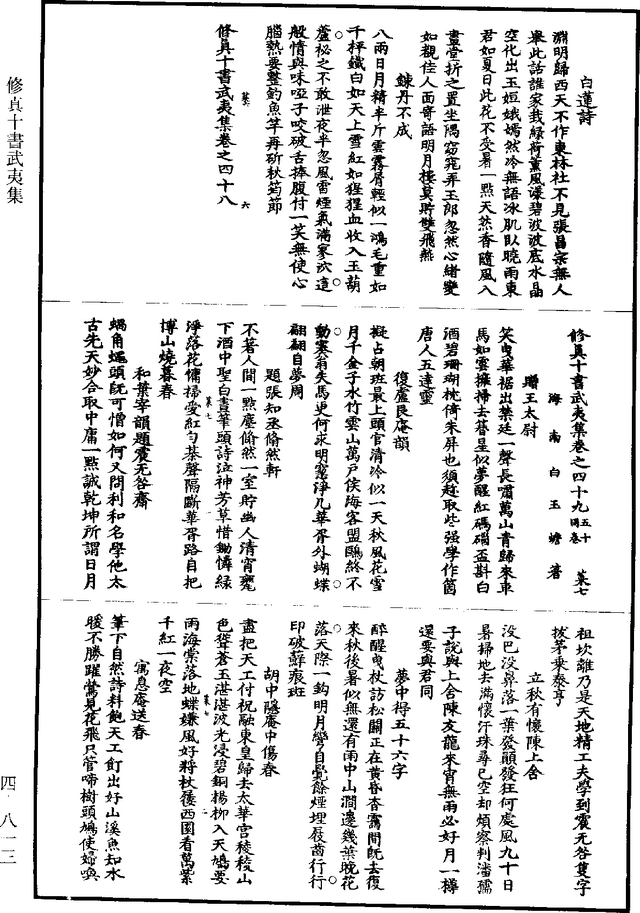 修真十書武夷集
四·八一三
白蓮詩
淵明歸西天不作東林社不見張昌宗無人
舉此話誰家栽綠荷薰風漾碧波波底水晶
空化出玉姮娥嫣然冷無語冰肌臥曉雨東
君如夏日此花不受暑一點天然香隨風入
畫堂折之置坐隅窈窕弄玉郎忽然心緒變
如觀佳人面寄語明月樓莫貯雙飛燕
鍊丹不成
八兩日月精半斤雲霧屑輕似一鴻毛重如
千秤鐵白如天上雪紅如猩猩血收入玉葫
蘆秘之不敢泄夜半忽風雷煙氣滿寥泬這
般情與味啞子咬破舌捧腹付一笑無使心
腦熱要整釣魚竿再斫秋筠節
修真十書武夷集卷之四十八
菜六 六
修真十書武夷集卷之四十九 五十同卷 菜七
海南白玉蟾著
贈王太尉
笑曳華裾出禁廷一聲長嘯萬山青歸來車
馬如雲擁掃去暮星似夢醒紅碼碯盃斟白
酒碧珊瑚枕倚朱屏也須趁取些強學作箇
唐人五達靈
復盧艮庵韻
擬占朝班最上頭官清冷似一天秋風花雪
月千金子水竹雲山萬戶侯海客盟鷗終不
動塞翁失馬更何求明窻淨几華胥外蝴蝶
翩翩自夢周
題張知丞翛然軒
不著人間一點塵翛然一室貯幽人清宵甕
下酒中聖白晝華頭詩泣神芳草惜鋤憐綠
淨落花傭掃愛紅勻棊聲隔斷華胥路自把
博山燒暮春
和葉宰韻題震无咎齋
蝸角蠅頭旣可憎如何又問利和名學他太
古先天妙合取中庸一點誠乾坤所謂日月
祖坎離乃是天地精工夫學到震无咎隻字
拔茅乘泰亨
立秋有懷陳上舍
没巴没鼻落一葉發顛發狂何處風九十日
暑掃地去滿懷汗珠尋已空却煩察判潘孺
子說與上舍陳友龍來宵無雨必好月一樽
還要與君同
夢中得五十六字
醉醒曳杖訪松關正在黃昏杳靄間旣去復
來秋後暑似無還有雨中山澗邊幾葉晚花
落天際一鈎明月彎自覺餘煙埋屐齒行行
印破蘚痕班
胡中隱庵中傷春
盡把天工付祝融東皇歸去太華宮稜稜山
色聳蒼玉湛湛波光浸碧銅楊柳入天鳩要
雨海棠落地蝶嫌風好將杖屨西園看萬紫
千紅一夜空
寓息庵送春
筆下自然詩料飽天工飣出好山溪魚知水
暖不勝躍鶯見花飛只管啼樹頭鳩使婦喚